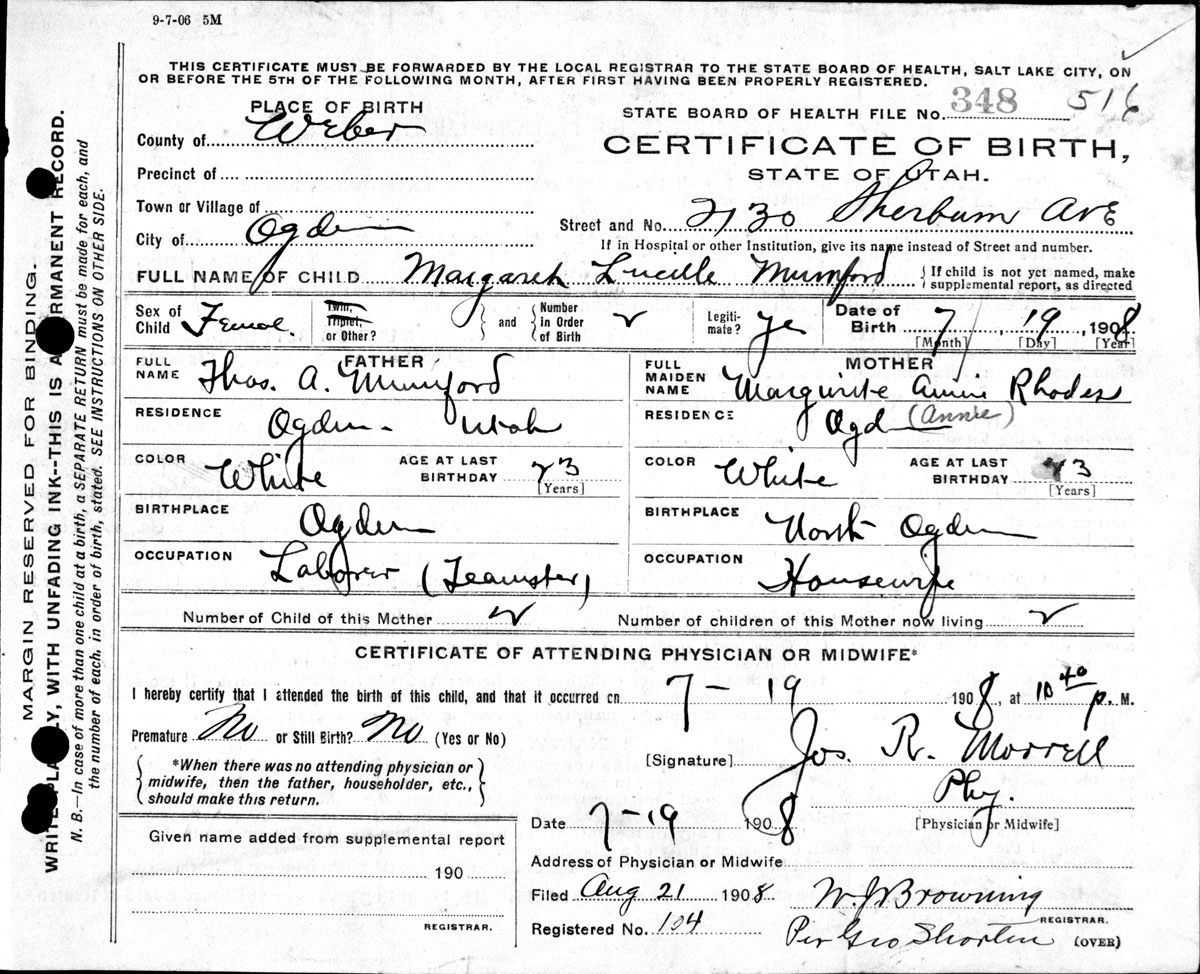 9-7-06 5M
THIS CERTIFICATE MUST BE FORWARDED BY THE LOCAL REGISTRAR TO THE STATE BOARD OF HEALTH, SALT LAKE CITY, ON
OR BEFORE THE 5TH OF THE FOLLOWING MONTH, AFTER FIRST HAVING BEEN PROPERLY REGISTERED.
PLACE OF BIRTH
STATE BOARD OF HEALTH FILE No. 348 516
County of Weber
CERTIFICATE OF BIRTH,
STATE OF UTAH.
Precinct of
Town or Village of
Street and No. 2130 Sherburn Ave
City of Ogden
If in Hospital or other Institution, give its name instead of Street and number.
FULL NAME OF CHILD Margaret Lucille Mumford
{ If child is not yet named, make
supplemental report, as directed
Sex of Child Female
Twin, Triplet, or Other?
and
Number in Order of Birth 2
Legiti-mate? yes
Date of Birth 7, 19, 1908
[Month] [Day] [Year]
FATHER
FULL NAME Thos. A. Mumford
MOTHER
FULL MAIDEN NAME Margurite Annie Rhodes
(Annie)
RESIDENCE Ogden. Utah
RESIDENCE Ogden
COLOR White
AGE AT LAST BIRTHDAY 23
[Years]
COLOR White
AGE AT LAST BIRTHDAY 23
[Years]
BIRTHPLACE Ogden
BIRTHPLACE North Ogden
OCCUPATION Laborer (Teamster)
OCCUPATION Housewife
Number of Child of this Mother 2
Number of children of this Mother now living 2
CERTIFICATE OF ATTENDING PHYSICIAN OR MIDWIFE*
I hereby certify that I attended the birth of this child, and that it occurred on 7-19 1908, at 10 40 P. M.
Premature No or Still Birth? No (Yes or No)
[Signature] Jos. R. Morrell
{ *When there was no attending physician or
midwife, then the father, householder, etc.,
should make this return. }
Phy.
Date 7-19 1908
[Physician or Midwife]
Given name added from supplemental report
190
REGISTRAR.
Address of Physician or Midwife
Filed Aug 21 1908
W. J. Browning
REGISTRAR.
Registered No. 104
Per Geo Shorten
(OVER)
MARGIN RESERVED FOR BINDING.
WRITE PLAINLY, WITH UNFADING INK--THIS IS A PERMANENT RECORD.
N. B.—In case of more than one child at a birth, a SEPARATE RETURN must be made for each, and
the number of each, in order of birth, stated. SEE INSTRUCTIONS ON OTHER SIDE.